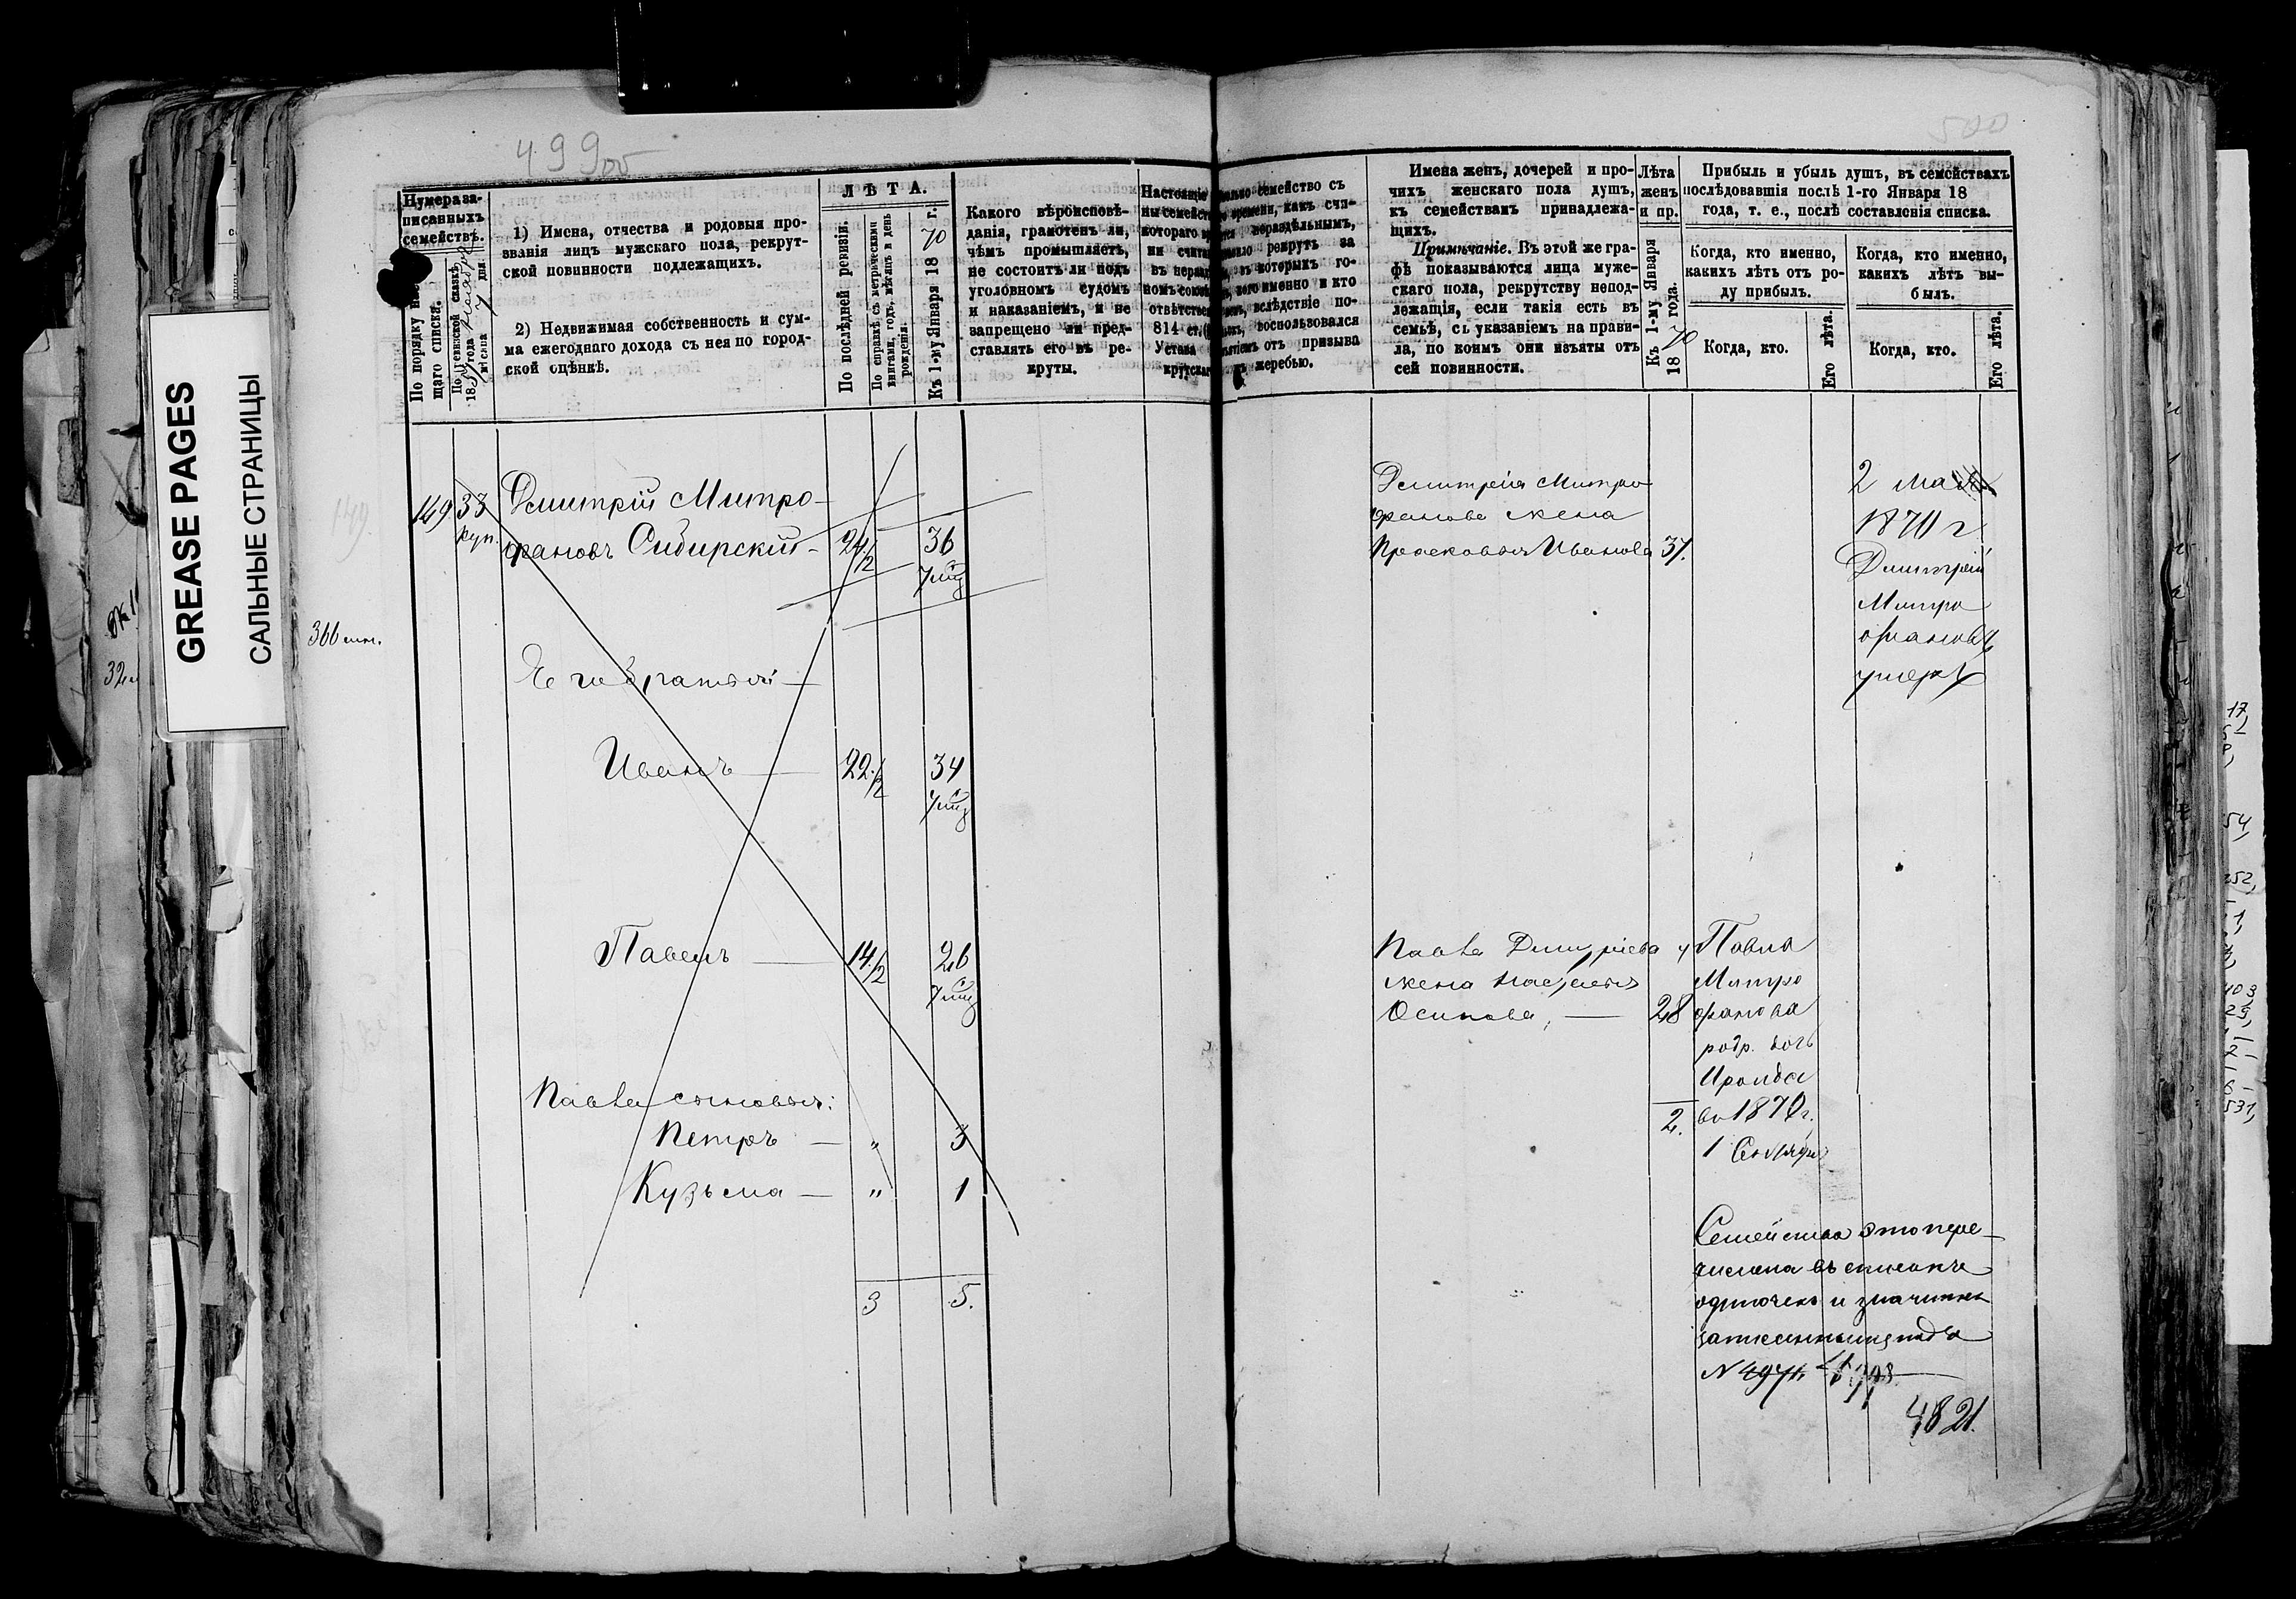 499об
500
GREASE PAGES
САЛЬНЫЕ СТРАНИЦЫ
Нумера за-
писанныхъ
семействъ.
По порядку нас
щаго списка.
По ревизской сказкѣ
18 года
мѣсяца 7 дня
1) Имена, отчества и родовыя про-
званія лицъ мужскаго пола, рекрут-
ской повинности подлежащихъ.
2) Недвижимая собственность и сум-
ма ежегоднаго дохода съ нея по город-
ской оцѣнкѣ.
ЛѢТА.
По послѣдней ревизіи.
По справкѣ съ метрическими
книгами, годъ, мѣсяцъ и день
рожденія.
Къ 1-му Января 1870 г.
Какого вѣроисповѣ-
данія, грамотенъ ли,
чѣмъ промышляетъ,
не состоитъ ли подъ
уголовномъ судомъ
и наказаніемъ, и не
запрещено ли пред-
ставлять его въ ре-
круты.
Настоящее
которaго
ни счита
въ нераз
отвѣтстве
814 ст.
Устава
крутскаго
семейство съ
времени, какъ счи-
нераздѣльнымъ,
рекрутъ за
въ которыхъ го-
кого именно и кто
вслѣдствіе по-
воспользовался
отъ призыва
жеребью.
Имена женъ, дочерей и про-
чихъ женскаго пола душъ,
къ семействамъ принадлежа-
щихъ.
Примѣчаніе. Въ этой же гра-
фѣ показываются лица муже-
скаго пола, рекрутству непод-
лежащія, если такія есть въ
семьѣ, съ указаніемъ на прави-
ла, по коимъ они изъяты отъ
сей повинности.
Лѣта
женъ
и пр.
Къ 1-му Января
1870 года.
Прибыль и убыль душъ, въ семействахъ
послѣдовавшія послѣ 1-го Января 18
года, т. е., послѣ составленія списка.
Когда, кто именно,
какихъ лѣтъ отъ ро-
ду прибылъ.
Когда, кто именно,
какихъ лѣтъ вы-
былъ.
Когда, кто.
Его лѣта.
Когда, кто.
Его лѣта.
149.
149. 33 Дмитрій Митро-
куп. фановъ Сибирскій - 24 1/2 36
7 мц
Его братья
Иванъ 22 1/2 34
7 мц
Павелъ 14 1/2 26
7 мц
Павла сыновья:
Петръ — " 3
Кузьма — " 1
3 5.
Дмитрія Митро-
фанова жена
Прасковья Иванова 37.
Павла Дмитріева
жена Настасья
Осипова, — 28
2.
2 Мая
1870 г.
Дмитрій
Митро
фановъ
умеръ
у Павла
Митро
фанова
родр. дочь
Ираида
во 1870 г.
1 Сентября
Семейство это пере-
числено въ списокъ
одиночекъ и значится
записаннымъ подъ
N 4974
4821.